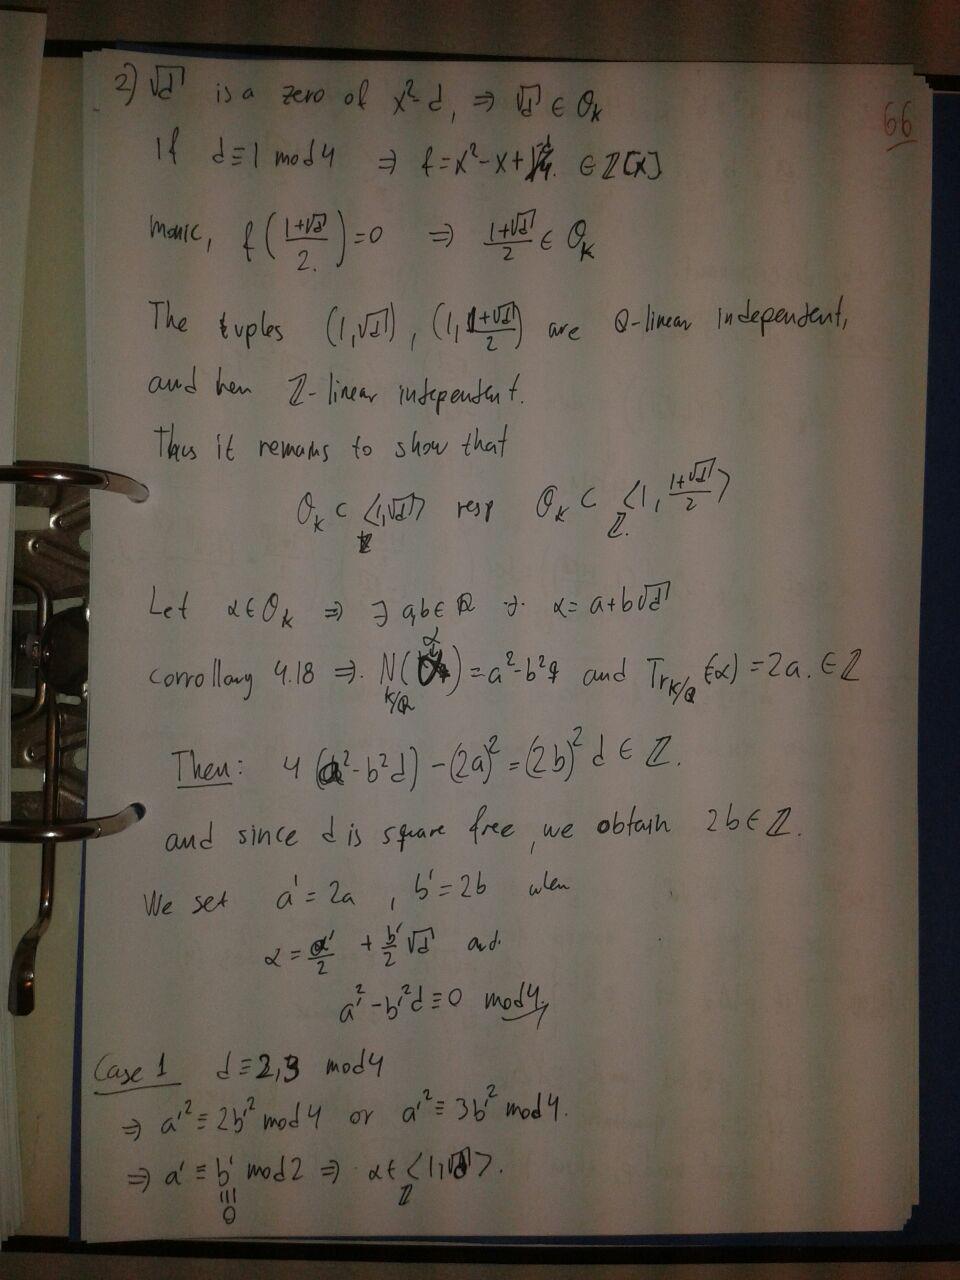 66
2) √d is a zero of x²-d, ⇒ √d ∈ O_K
If d≡1 mod 4 ⇒ f=x²-x+(1-d)/4. ∈ ℤ[x]
monic, f((1+√d)/2.)=0 ⇒ (1+√d)/2 ∈ O_K
The tuples (1,√d), (1,(1+√d)/2) are Q-linear independent,
and hen ℤ-linear independent.
Thus it remains to show that
O_K ⊂ ⟨1,√d⟩_ℤ resp O_K ⊂ ⟨1,(1+√d)/2⟩_ℤ.
Let α∈O_K ⇒ ∃ a,b∈Q s.t. α=a+b√d
corrollary 4.18 ⇒. N_K/Q(α)=a²-b²d and Tr_K/Q(α)=2a. ∈ ℤ
Then: 4(a²-b²d)-(2a)²=(2b)²d ∈ ℤ.
and since d is square free, we obtain 2b∈ℤ.
We set a'=2a, b'=2b when
α=a'/2 + b'/2 √d and.
a'²-b'²d≡0 mod 4,
Case 1 d≡2,3 mod 4
⇒ a'²≡2b'² mod 4 or a'²≡3b'² mod 4.
⇒ a'≡b' mod 2 ⇒ α∈⟨1,√d⟩_ℤ.
≡
0